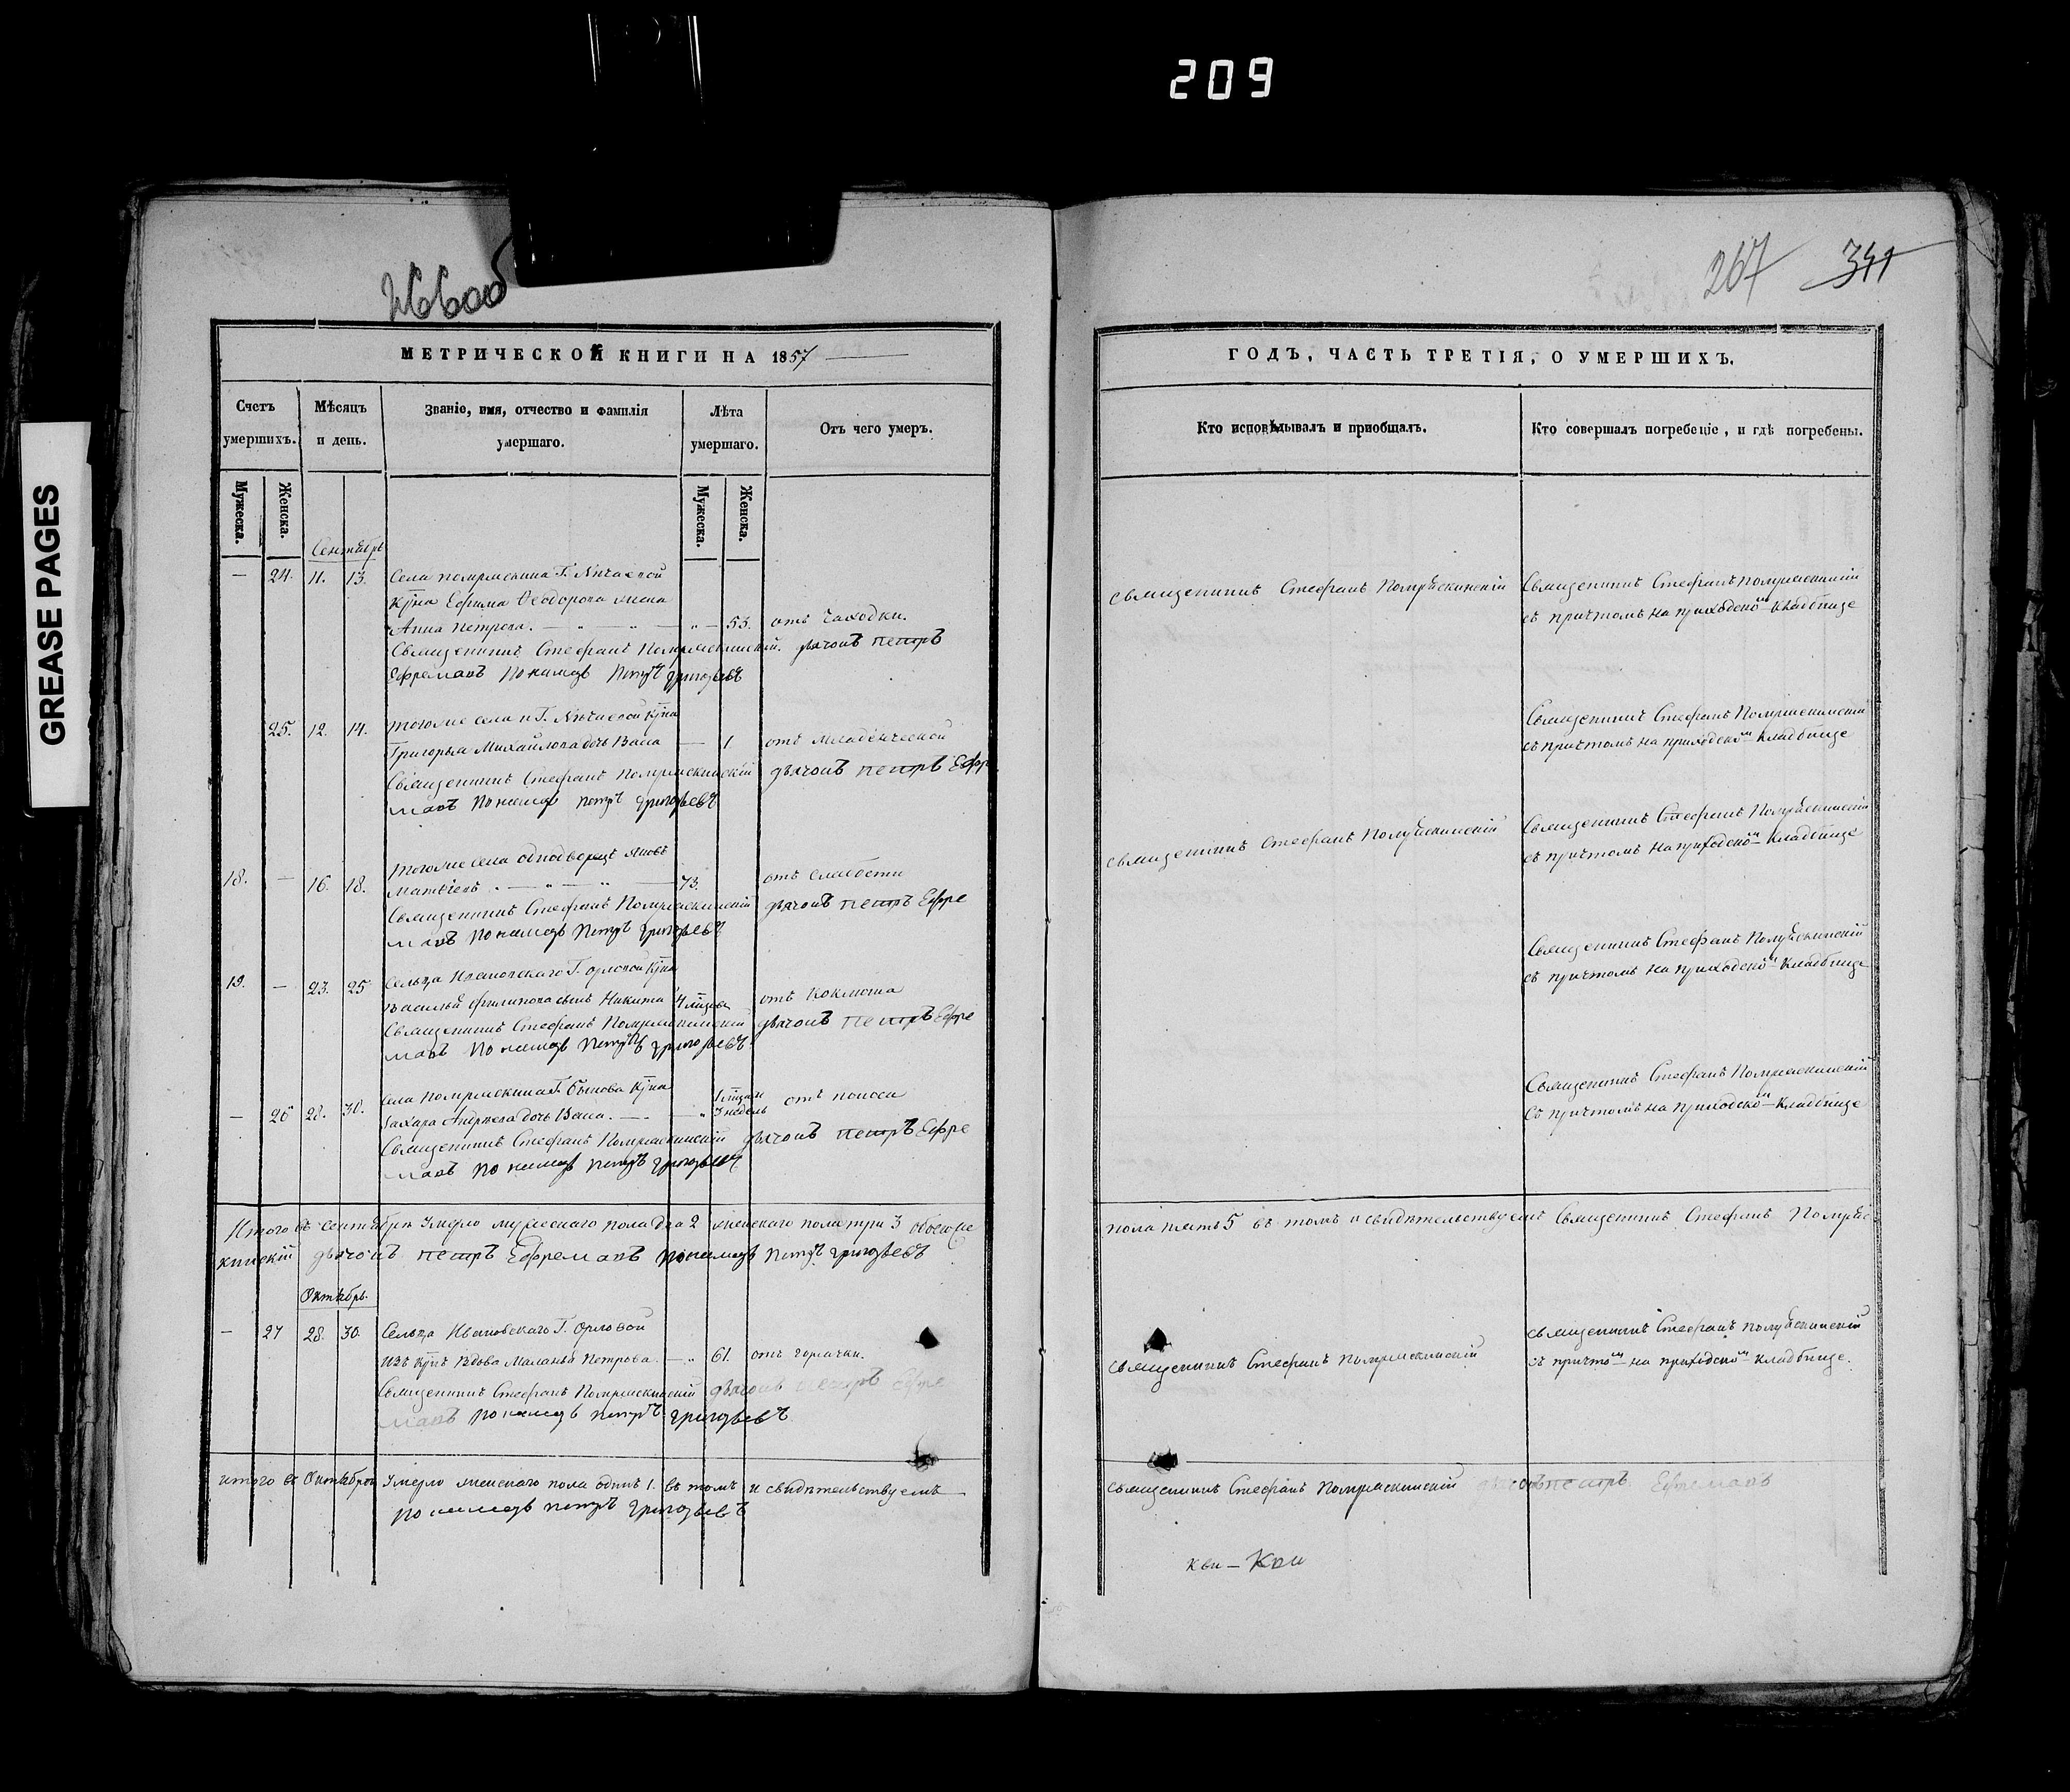 209
266об
267 341
GREASE PAGES
МЕТРИЧЕСКОЙ КНИГИ НА 1857
Счетъ умершихъ.
Мѣсяцъ и день.
Званіе, имя, отчество и фамилія умершаго.
Лѣта умершаго.
Отъ чего умеръ.
Мужеска.
Женска.
Мужеска.
Женска.
Сентябрь
— 24. 11. 13. Села
Ефима Ѳеодорова жена
Анна Петрова. — „ — „ — „ — 53. отъ Чахотки.
Священникъ Стефанъ дьячокъ Петръ
Ефремовъ Пономарь Петръ Григорьевъ
25. 12. 14. тогоже села и Г.
Григорья Михайлова дочь Васса — 1. отъ младенческой
Священникъ Стефанъ дьячокъ Петръ Ефре
мовъ Пономарь Петръ Григорьевъ
тогоже села однодворецъ
18. — 16. 18. Матвіевъ . — „ — „ — 73. отъ слабости
Священникъ Стефанъ дьячокъ Петръ Ефре
мовъ Пономарь Петръ Григорьевъ
19. — 23. 25 Сельца Ивановскаго Г. Орловой
Василья Филипова сынъ Никита 4 отъ Коклюша
Священникъ Стефанъ дьячокъ Петръ Ефре
мовъ Пономарь Петръ Григорьевъ
— 26 28. 30. Села Г. Быкова
Захара Андреева дочь Васса. — „ 3 недель отъ поноса
Священникъ Стефанъ дьячокъ Петръ Ефре
мовъ Пономарь Петръ Григорьевъ
Итого въ Сентябрѣ Умерло мужескаго пола два 2 женскаго пола три 3 обоего
кинскій дьячокъ Петръ Ефремовъ Пономарь Петръ Григорьевъ
Октябрь.
— 27 28. 30. Сельца Ивановскаго Г. Орловой
изъ вдова Маланья Петрова. — „ 61. отъ горячки.
Священникъ Стефанъ дьячокъ Петръ Ефре
мовъ Пономарь Петръ Григорьевъ
итого въ Октябрѣ Умерло женскаго пола одинъ 1. въ томъ и свидѣтельствуемъ
Пономарь Петръ Григорьевъ
ГОДЪ, ЧАСТЬ ТРЕТІЯ, О УМЕРШИХЪ.
Кто исповѣдывалъ и пріобщалъ.
Кто совершалъ погребеніе, и гдѣ погребены.
Священникъ Стефанъ
Священникъ Стефанъ
съ причтомъ на приходскомъ Кладбище
Священникъ Стефанъ
съ причтомъ на приходскомъ Кладбище
Священникъ Стефанъ
Священникъ Стефанъ
съ причтомъ на приходскомъ Кладбище
Священникъ Стефанъ
съ причтомъ на приходскомъ Кладбище
Священникъ Стефанъ
Съ причтомъ на приходскомъ Кладбище
пола пять 5 въ томъ и свидѣтельствуемъ Священникъ Стефанъ
Священникъ Стефанъ
Священникъ Стефанъ
съ причтомъ на приходскомъ кладбище.
Священникъ Стефанъ дьячокъ Петръ Ефремовъ